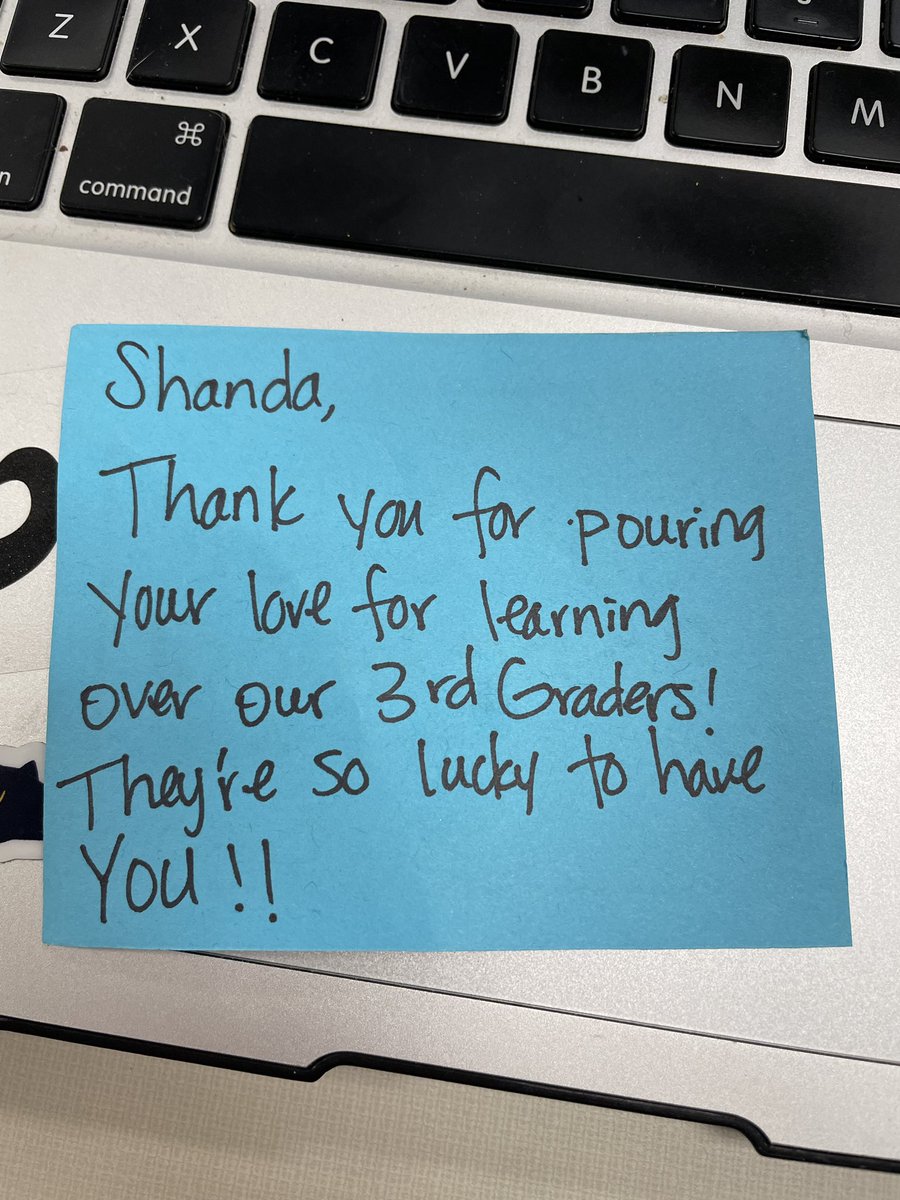 Z X C V B N M
n command ⌘
Shanda,
Thank you for pouring
your love for learning
over our 3rd Graders!
They're so lucky to have
You!!